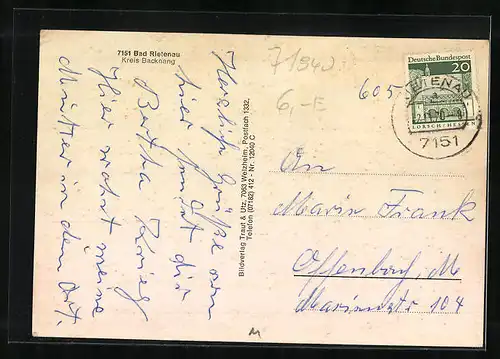 7151 Bad Rietenau
Kreis Backnang
71540
6,-E
605
Deutsche Bundespost
20
LORSCH/HESSEN
RIETENAU
7151
Herzliche Grüße von
hier sendet dir
Bertha Krieg
Hier wohnt meine
Mutter in dem Ort.
Bildverlag Traut & Utz, 7063 Welzheim, Postfach 1332,
Telefon (07182) 412 - Nr. 12900 C
An
Marie Frank
Offenbach, M
Marienstr 104
M